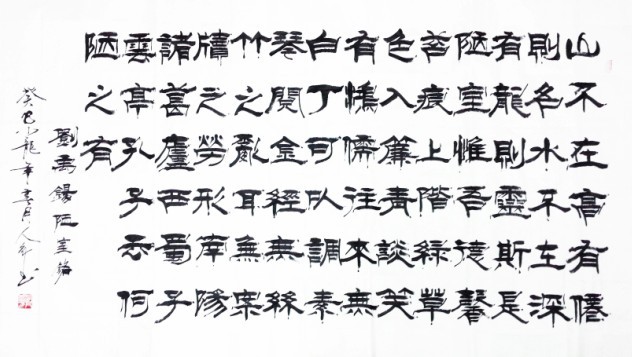 山不在高有僊
則名水不在深
有龍則靈斯是
陋室惟吾德馨
苔痕上階綠草
色入簾青談笑
有鴻儒往來無
白丁可以調素
琴閱金經無絲
竹之亂耳無案
牘之勞形南陽
諸葛廬西蜀子
雲亭孔子云何
陋之有
劉禹錫陋室銘
癸巳小龍年